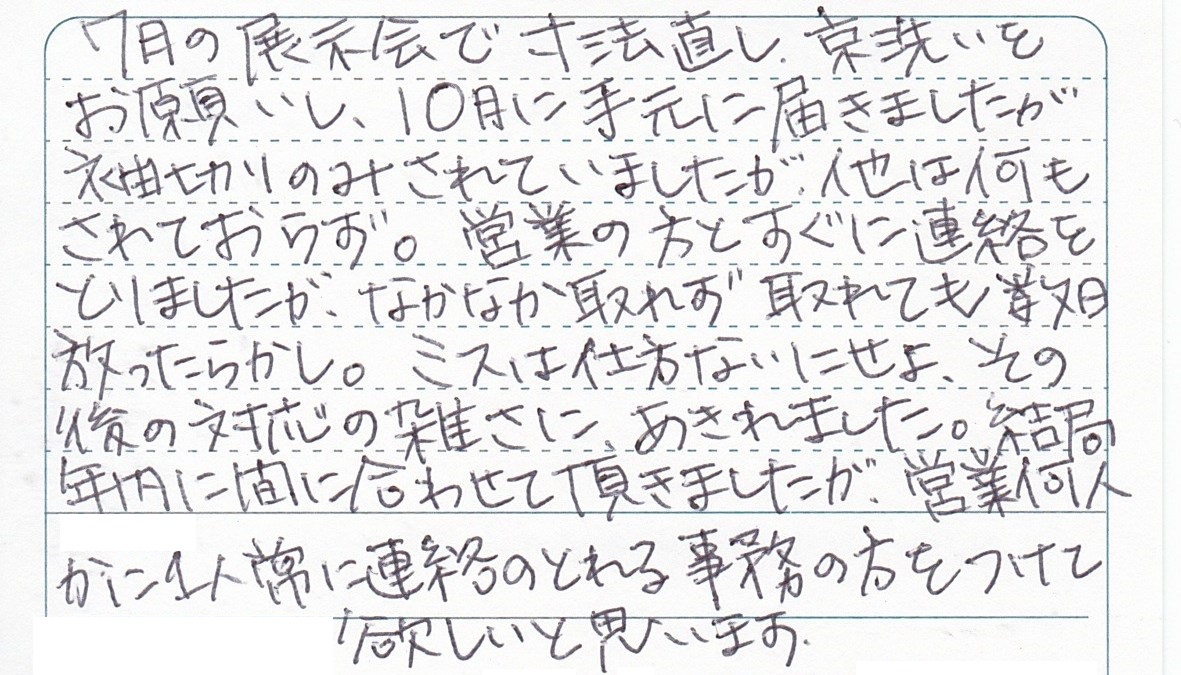 7月の展示会で寸法直し、京洗いを
お願いし、10月に手元に届きましたが
袖切りのみされていましたが、他は何も
されておらず。営業の方とすぐに連絡を
とりましたが、なかなか取れず 取れても数日
放ったらかし。ミスは仕方ないにせよ、その
後の対応の雑さに、あきれました。結局
年内に間に合わせて頂きましたが、営業何人
かに1人常に連絡のとれる事務の方をつけて
欲しいと思います。